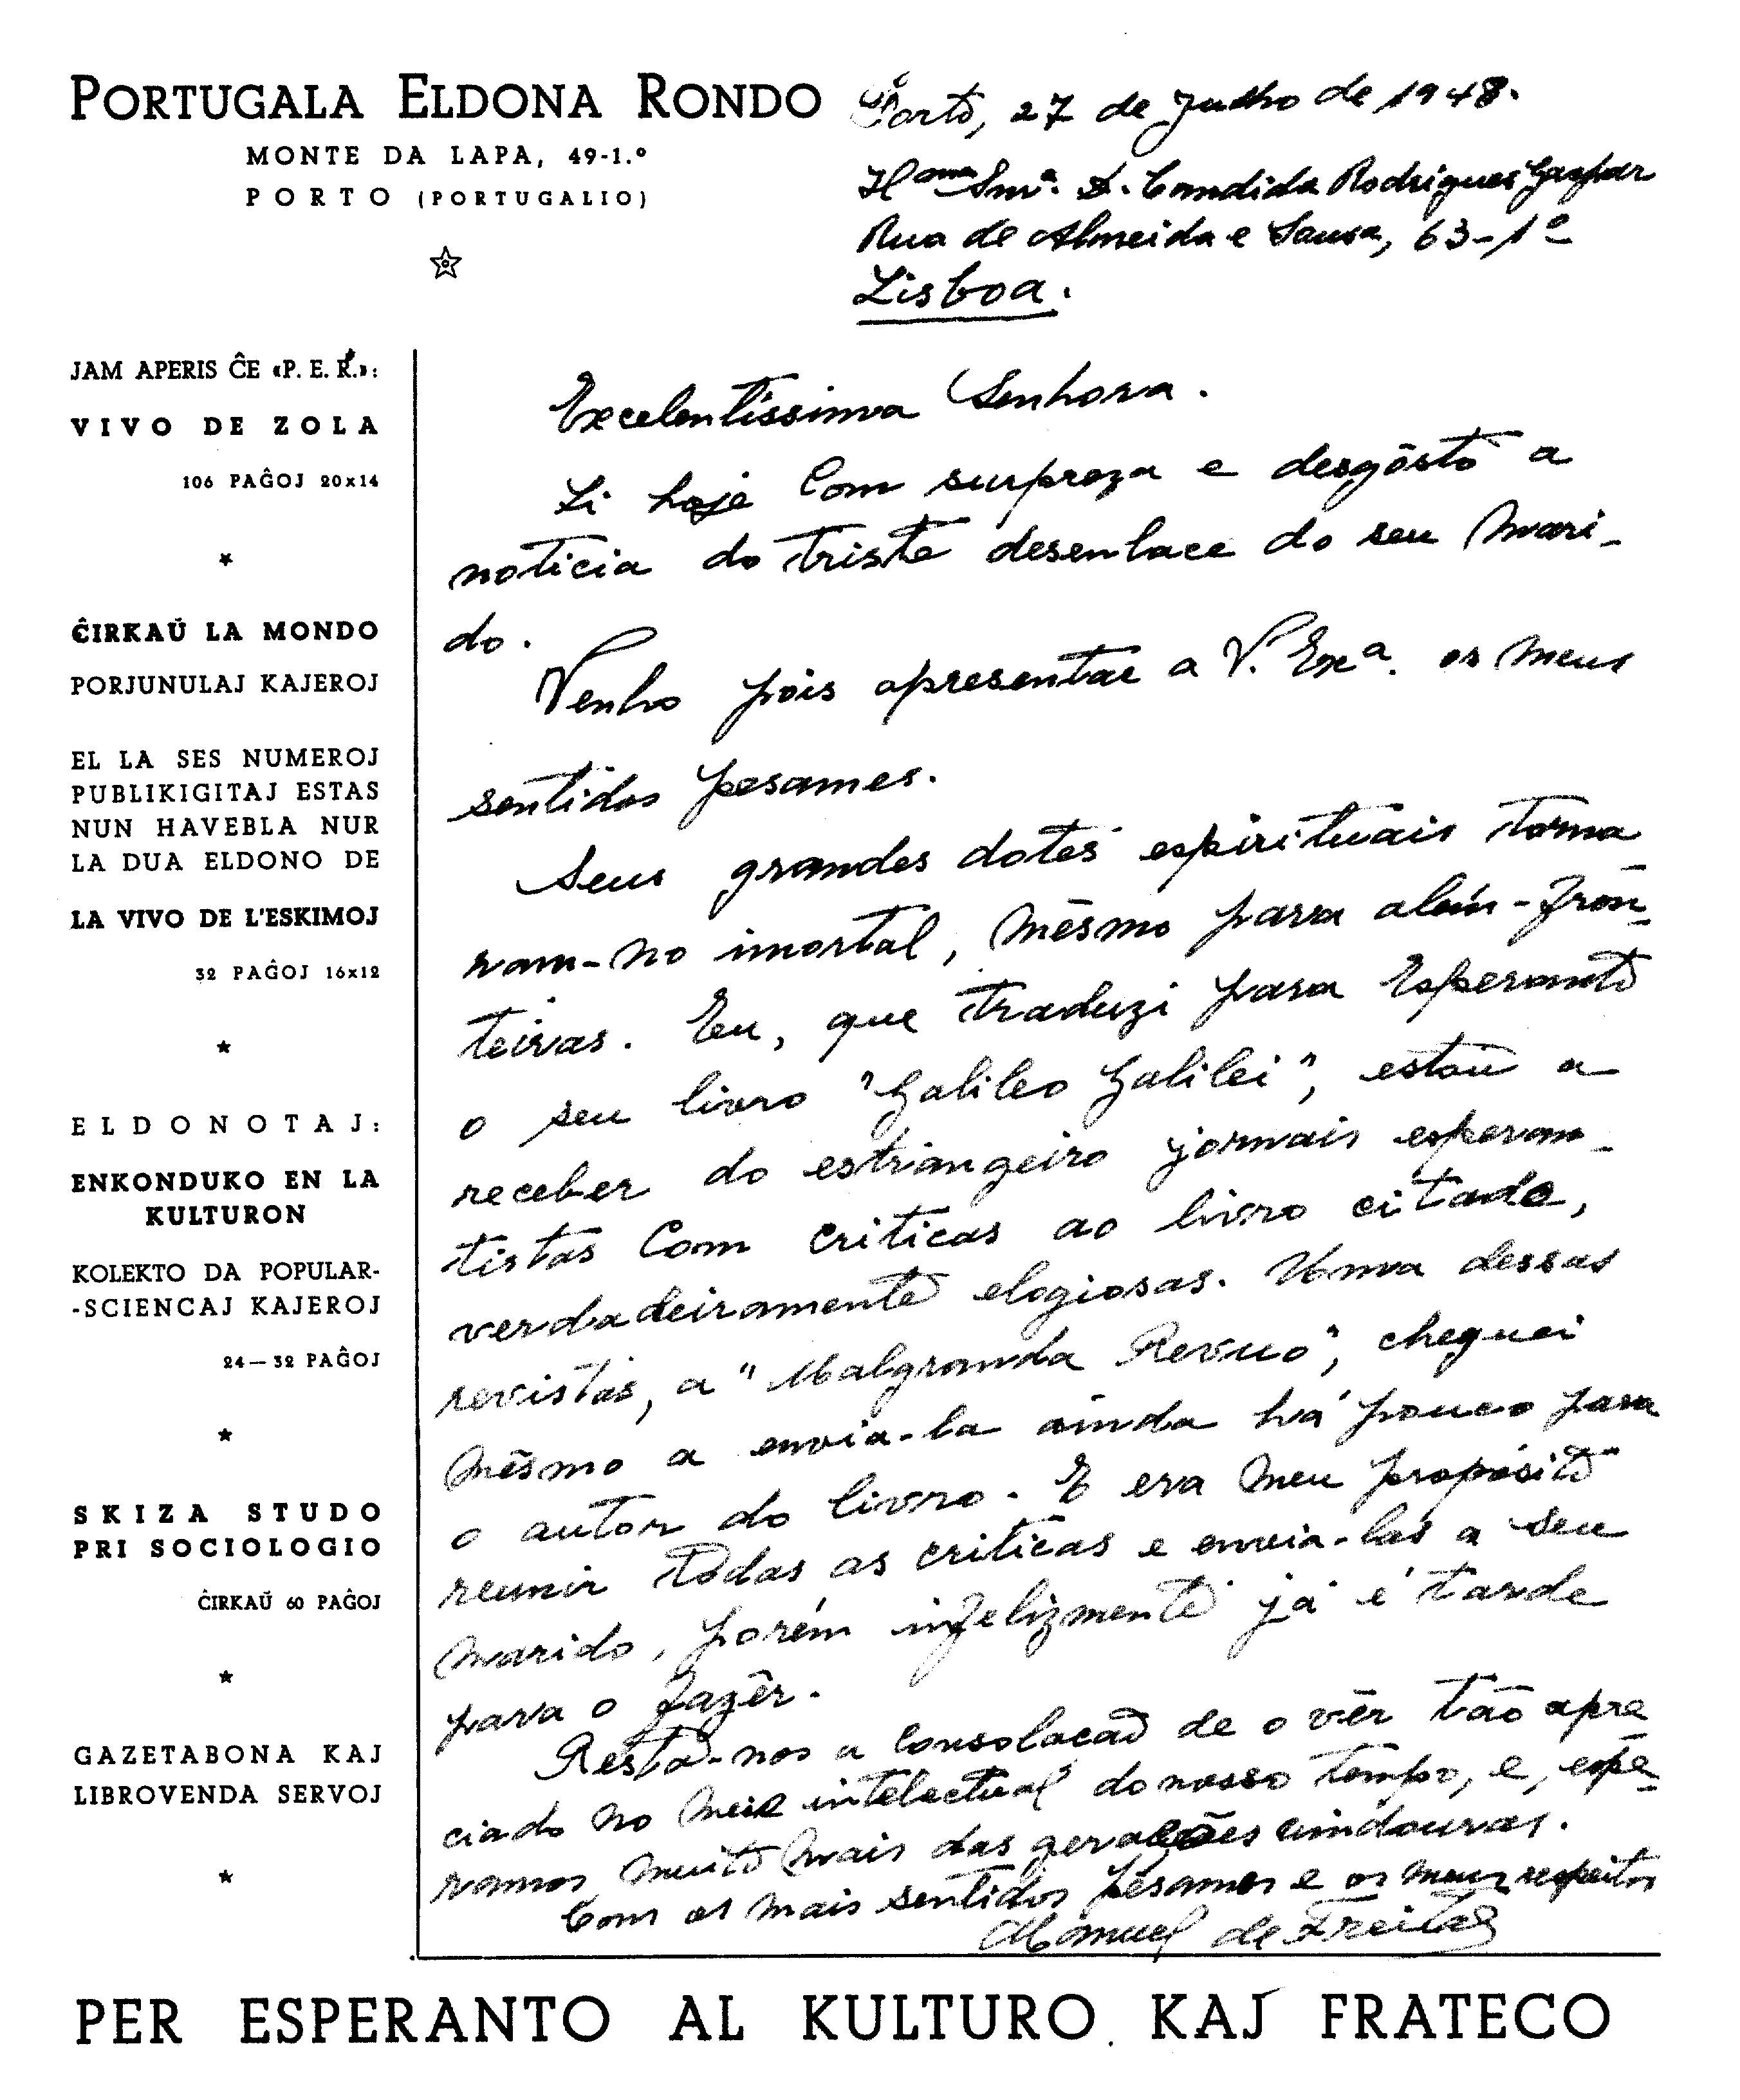 PORTUGALA ELDONA RONDO
MONTE DA LAPA, 49-1.º
PORTO (PORTUGALIO)
Porto, 27 de Julho de 1948.
Rua de Almeida e Sousa, 63-1º
Lisboa.
JAM APERIS ĈE «P. E. R.»:
VIVO DE ZOLA
106 PAĜOJ 20x14
ĈIRKAŬ LA MONDO
PORJUNULAJ KAJEROJ
EL LA SES NUMEROJ
PUBLIKIGITAJ ESTAS
NUN HAVEBLA NUR
LA DUA ELDONO DE
LA VIVO DE L'ESKIMOJ
32 PAĜOJ 16x12
ELDONOTAJ:
ENKONDUKO EN LA
KULTURON
KOLEKTO DA POPULAR-
-SCIENCAJ KAJEROJ
24—32 PAĜOJ
SKIZA STUDO
PRI SOCIOLOGIO
ĈIRKAŬ 60 PAĜOJ
GAZETABONA KAJ
LIBROVENDA SERVOJ
Excelentissima Senhora.
Li hoje com surpreza e desgôsto a
noticia do triste desenlace do seu mari-
do.
Venho pois apresentar a V. Exª. os meus
sentidos pesames.
Seus grandes dotes espirituais torna
ram-no imortal, mêsmo para além-fron-
teiras. Eu, que traduzi para Esperanto
o seu livro "Galileo Galilei", estou a
receber do estrangeiro jornais esperan-
tistas com criticas ao livro citado,
verdadeiramente elogiosas. Uma dessas
revistas, a "Malgranda Revuo", cheguei
mêsmo a envia-la ainda há pouco para
o autor do livro. E era meu propósito
reunir tôdas as criticas e envia-las a seu
marido, porém infelizmente já é tarde
para o fazêr.
Resta-nos a consolacão de o vêr tão apre-
ciado no meio intelectual do nosso tempo, e, espe-
ramos muito mais das gerações vindouras.
Com os mais sentidos pêsames e os meus respeitos
Manuel de Freitas
PER ESPERANTO AL KULTURO KAJ FRATECO